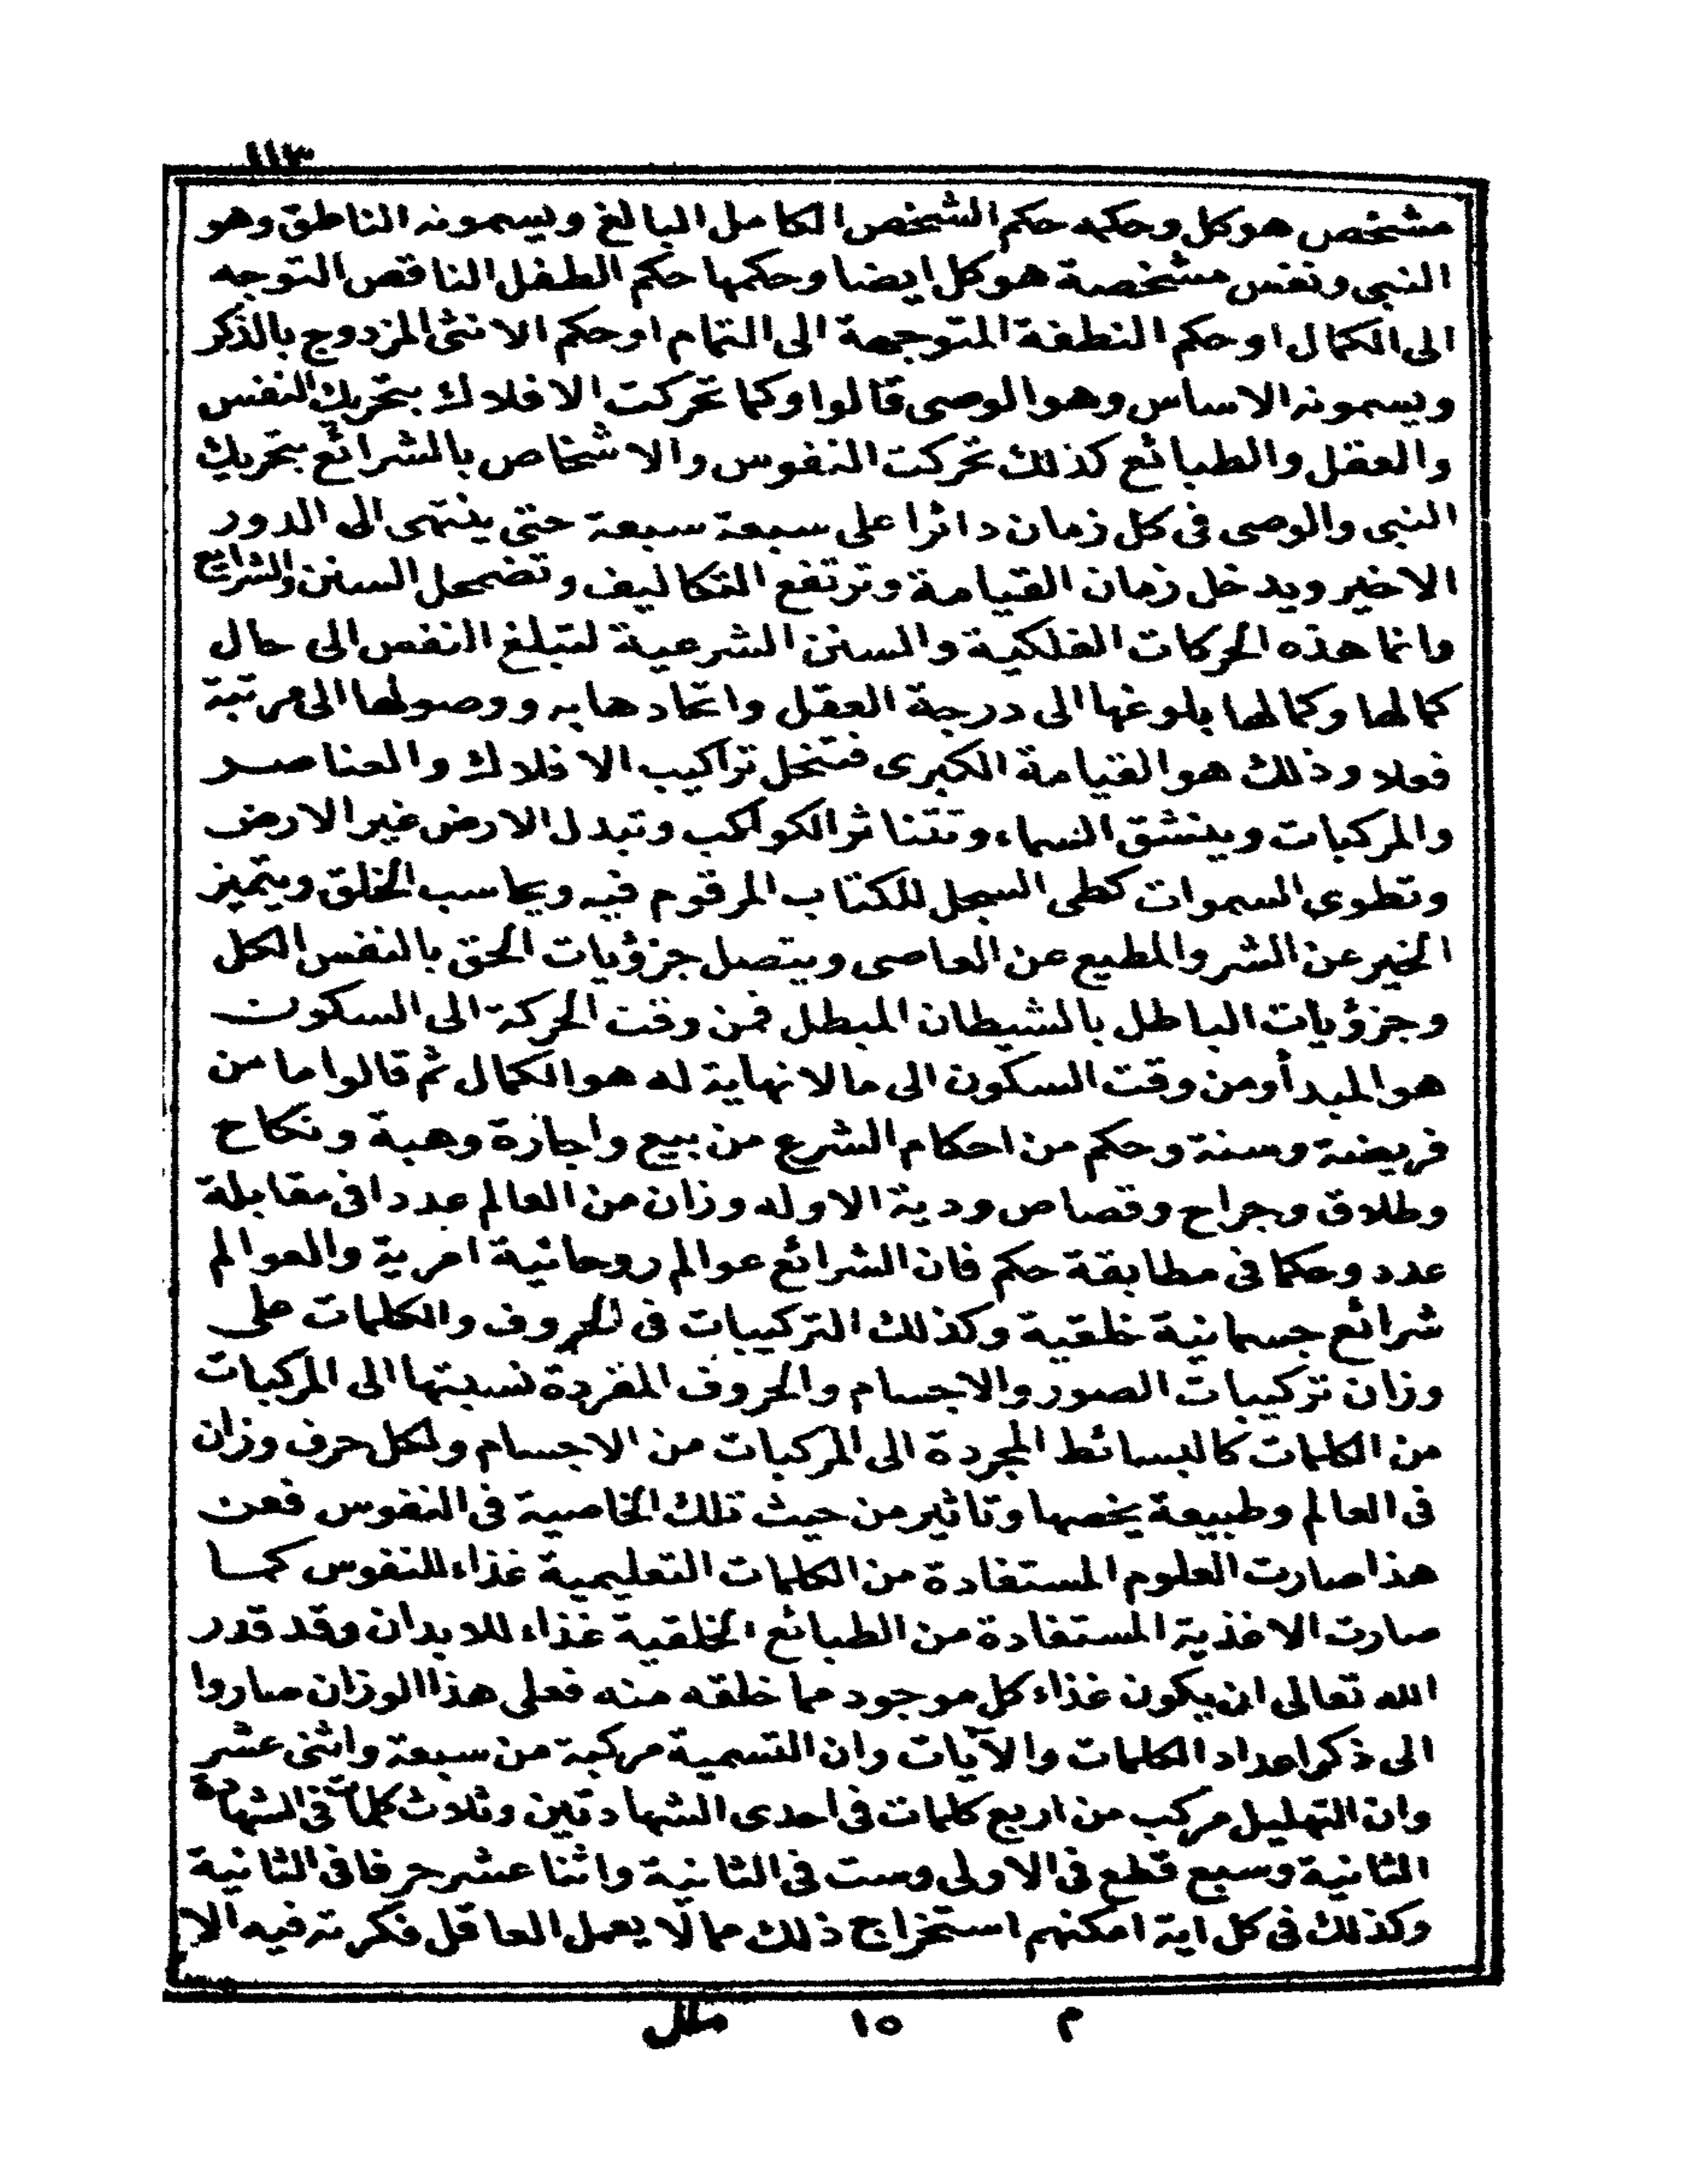 ١١٣
مشخص هو كل وحكمه حكم الشخص الكامل البالغ ويسمونه الناطق وهو
النبى ونفس مشخصة هو كل ايضا وحكمها حكم الطفل الناقص التوجه
الى الكمال او حكم النطفة المتوجهة الى التمام او حكم الانثى المزدوج بالذكر
ويسمونه الاساس وهو الوصى قالوا وكما تحركت الافلاك بتحريك النفس
والعقل والطبائع كذلك تحركت النفوس والاشخاص بالشرائع بتحريك
النبى والوصى فى كل زمان دائرا على سبعة سبعة حتى ينتهى الى الدور
الاخير ويدخل زمان القيامة وترتفع التكاليف وتضمحل السنن والشرايع
وانما هذه الحركات الفلكية والسنن الشرعية لتبلغ النفس الى حال
كمالها وكمالها بلوغها الى درجة العقل واتحادها به ووصولها الى مرتبة
فعلا وذلك هو القيامة الكبرى فتنحل تراكيب الافلاك والعناصر
والمركبات وينشق السماء وتتناثر الكواكب وتبدل الارض غير الارض
وتطوى السموات كطى السجل للكتاب المرقوم فيه ويحاسب الخلق ويتميز
الخير عن الشر والمطيع عن العاصى ويتصل جزؤيات الحق بالنفس الكل
وجزؤيات الباطل بالشيطان المبطل فمن وقت الحركة الى السكون
هو المبدأ ومن وقت السكون الى ما لا نهاية له هو الكمال ثم قالوا ما من
فريضة وسنة وحكم من احكام الشرع من بيع واجازة وهبة ونكاح
وطلاق وجراح وقصاص ودية الا وله وزان من العالم عددا فى مقابلة
عدد وحكما فى مطابقة حكم فان الشرائع عوالم روحانية امرية والعوالم
شرائع جسمانية خلقية وكذلك التركيبات فى الحروف والكلمات على
وزان تركيبات الصور والاجسام والحروف المفردة نسبتها الى المركبات
من الكلمات كالبسائط المجردة الى المركبات من الاجسام ولكل حرف وزان
فى العالم وطبيعة يخصها وتاثير من حيث تلك الخاصية فى النفوس فعن
هذا صارت العلوم المستفادة من الكلمات التعليمية غذاء للنفوس كما
صارت الاغذية المستفادة من الطبائع الخلقية غذاء للابدان وقد قدر
الله تعالى ان يكون غذاء كل موجود مما خلقه منه فعلى هذا الوزان صاروا
الى ذكر اعداد الكلمات والآيات وان التسمية مركبة من سبعة واثنى عشر
وان التهليل مركب من اربع كلمات فى احدى الشهادتين وثلاث كلمات فى الشهادة
الثانية وسبع قطع فى الاولى وست فى الثانية واثنا عشر حرفا فى الثانية
وكذلك فى كل اية امكنهم استخراج ذلك مما لا يعمل العاقل فكرته فيه الا
م ١٥ ملل